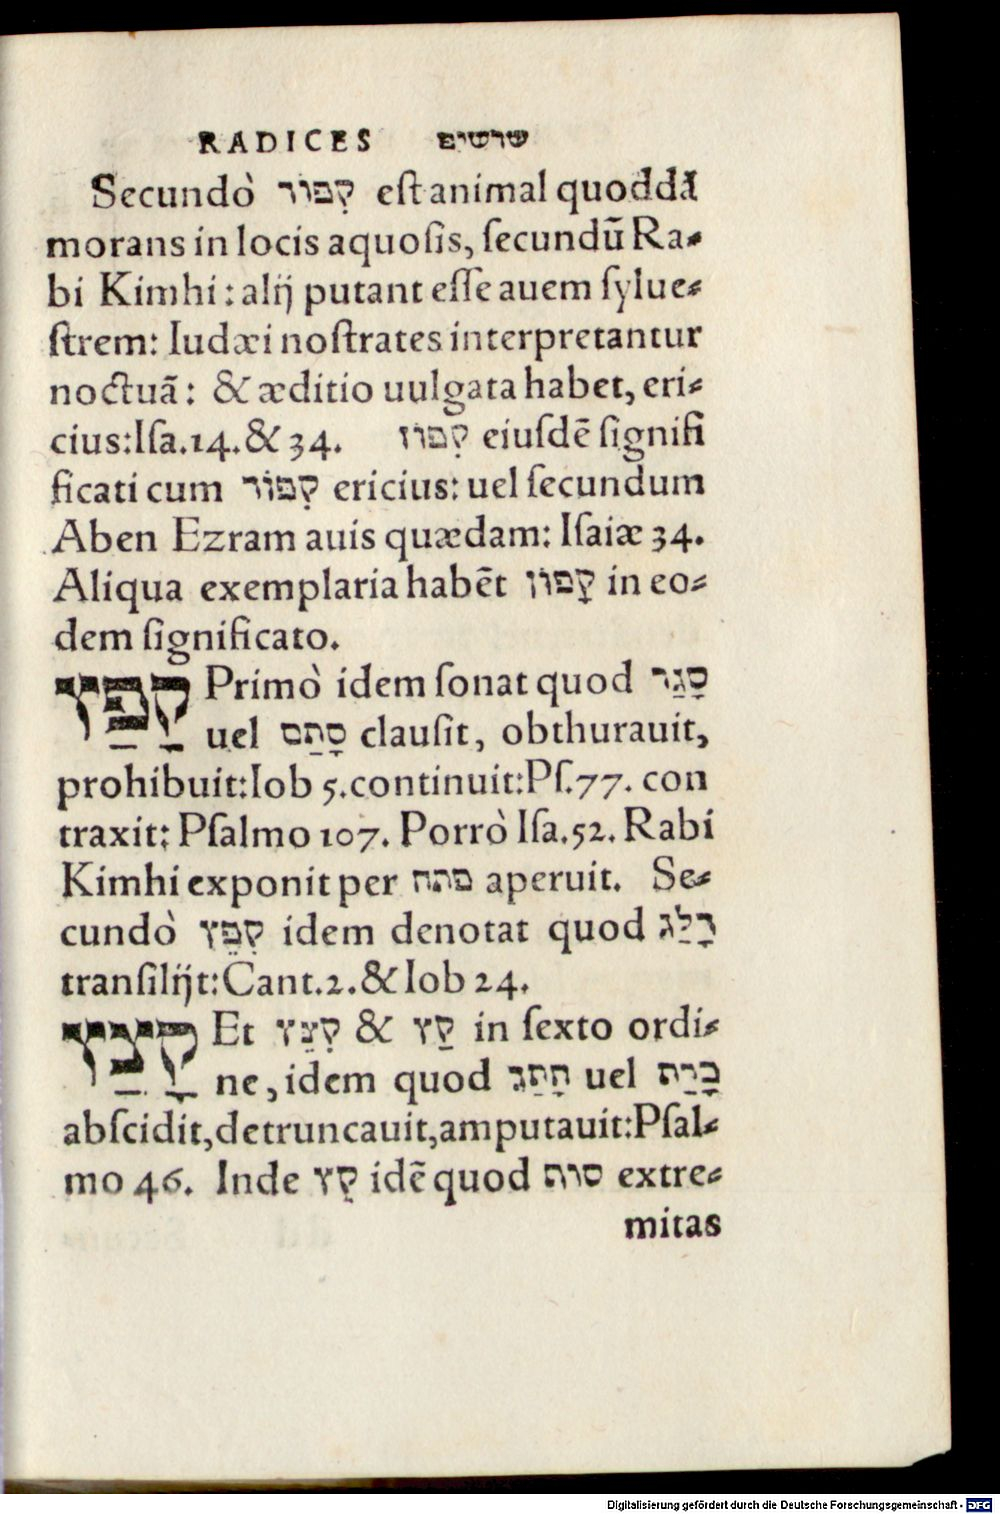 RADICES שרשים
Secundò קִפּוֹר est animal quoddā
morans in locis aquosis, secundū Ra-
bi Kimhi: alij putant esse auem sylue-
strem: Iudæi nostrates interpretantur
noctuā: & æditio uulgata habet, eri-
cius: Isa.14.& 34. קִפּוֹז eiusdē signifi
ficati cum קִפּוֹר ericius: uel secundum
Aben Ezram auis quædam: Isaiæ 34.
Aliqua exemplaria habēt קָפוֹן in eo-
dem significato.
קָפַץ Primò idem sonat quod סָגַר
uel סָתַם clausit, obthurauit,
prohibuit: Iob 5. continuit: Ps.77. con
traxit: Psalmo 107. Porrò Isa.52. Rabi
Kimhi exponit per פתח aperuit. Se-
cundò קִפֵּץ idem denotat quod דָלַג
transilijt: Cant.2.& Iob 24.
קָצַץ Et קִצֵץ & קַץ in sexto ordi-
ne, idem quod חָתַך uel כָּרַת
abscidit, detruncauit, amputauit: Psal-
mo 46. Inde קֵץ idē quod סוֹף extre-
mitas
Digitalisierung gefördert durch die Deutsche Forschungsgemeinschaft - DFG